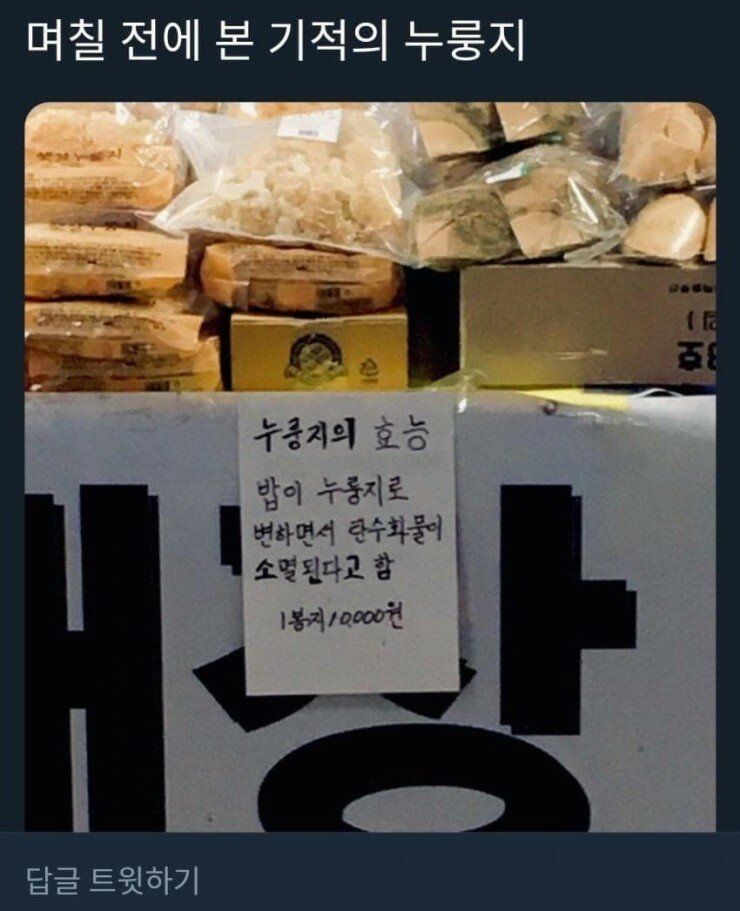 며칠 전에 본 기적의 누룽지
누룽지의 효능
밥이 누룽지로
변하면서 탄수화물이
소멸된다고 함
1봉지 10,000원
답글 트윗하기